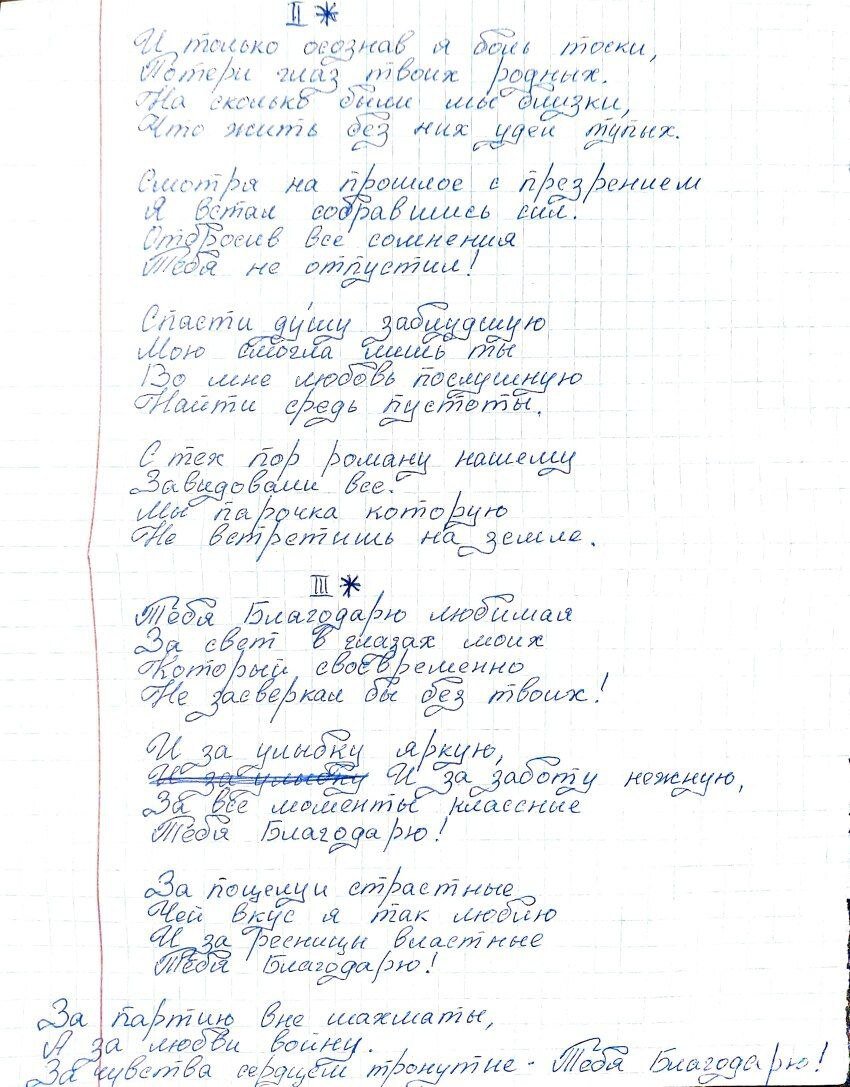 II *
И только осознав я боль тоски,
Потери глаз твоих родных.
На сколько были мы близки,
Что жить без них удел тупых.
Смотря на прошлое с презрением
Я встал собравшись сил.
Отбросив все сомнения
Тебя не отпустил!
Спасти ду́шу заблудшую
Мою смогла лишь ты
Во мне любовь послушную
Найти средь пустоты.
С тех пор роману нашему
Завидовали все.
Мы парочка которую
Не встретишь на земле.
III *
Тебя Благодарю любимая
За свет в глазах моих
Который своевременно
Не засверкал бы без твоих!
И за улыбку яркую,
И за улыбку И за заботу нежную,
За все моменты классные
Тебя Благодарю!
За поцелуи страстные
Чей вкус я так люблю
И за ресницы властные
Тебя Благодарю!
За партию вне шахматы,
А за любви войну.
За чувства сердцем тронутые - Тебя Благодарю!